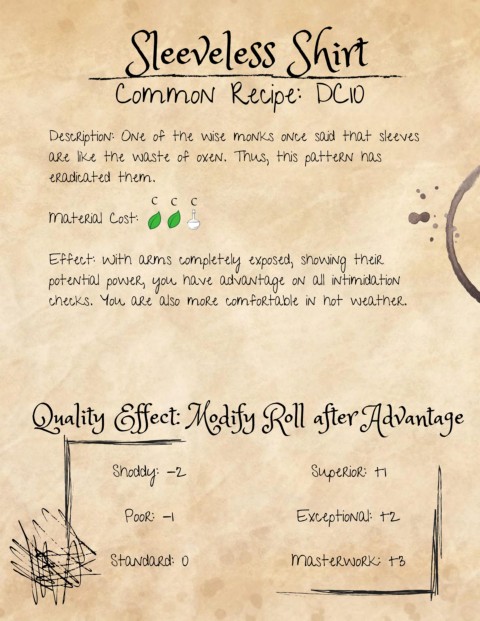 Sleeveless Shirt
Common Recipe: DC10
Description: One of the wise monks once said that sleeves
are like the waste of oxen. Thus, this pattern has
eradicated them.
C C C
Material Cost:
Effect: With arms completely exposed, showing their
potential power, you have advantage on all intimidation
checks. You are also more comfortable in hot weather.
Quality Effect: Modify Roll after Advantage
Shoddy: -2
Superior: +1
Poor: -1
Exceptional: +2
Standard: 0
Masterwork: +3